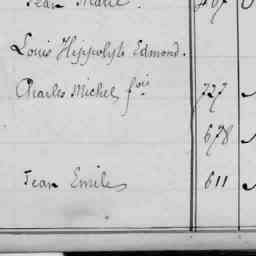 Jean Marie. 467
Louis Hippolyte Edmond.
Charles Michel fois 727
678
Jean Emile 611